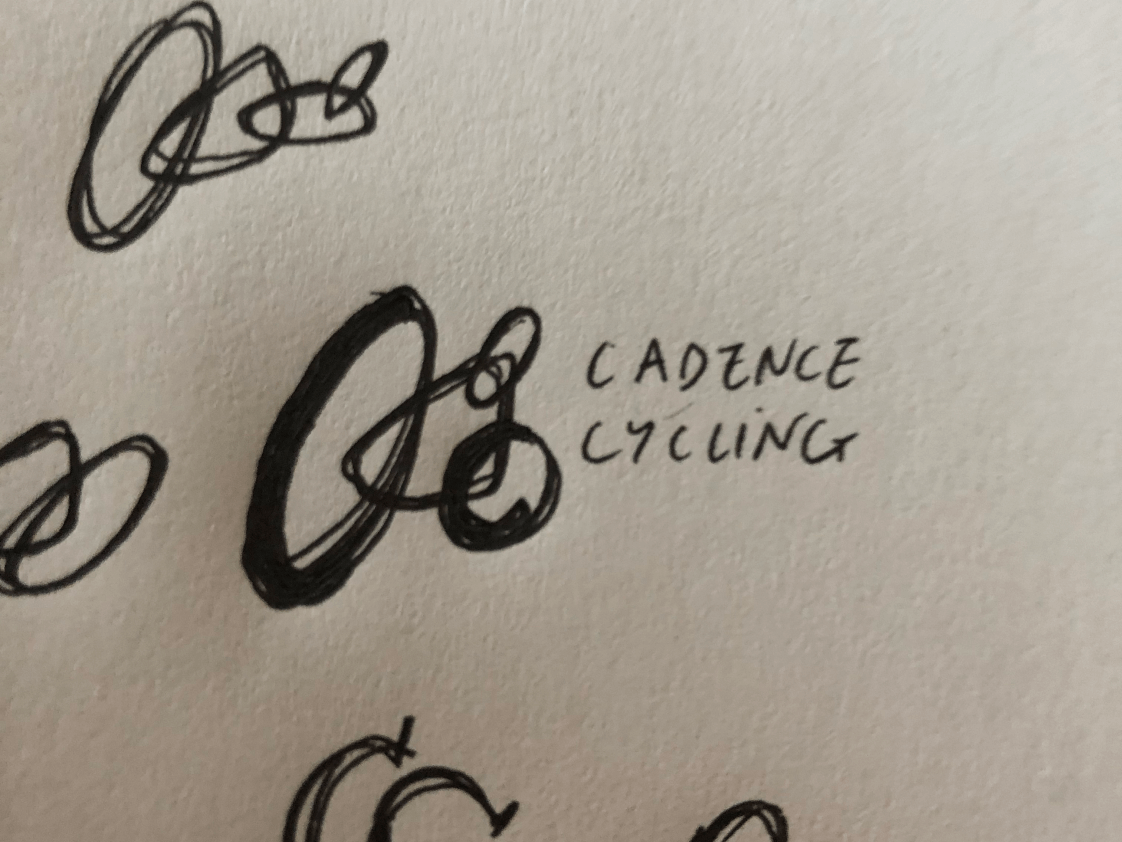 CADENCE
CYCLING